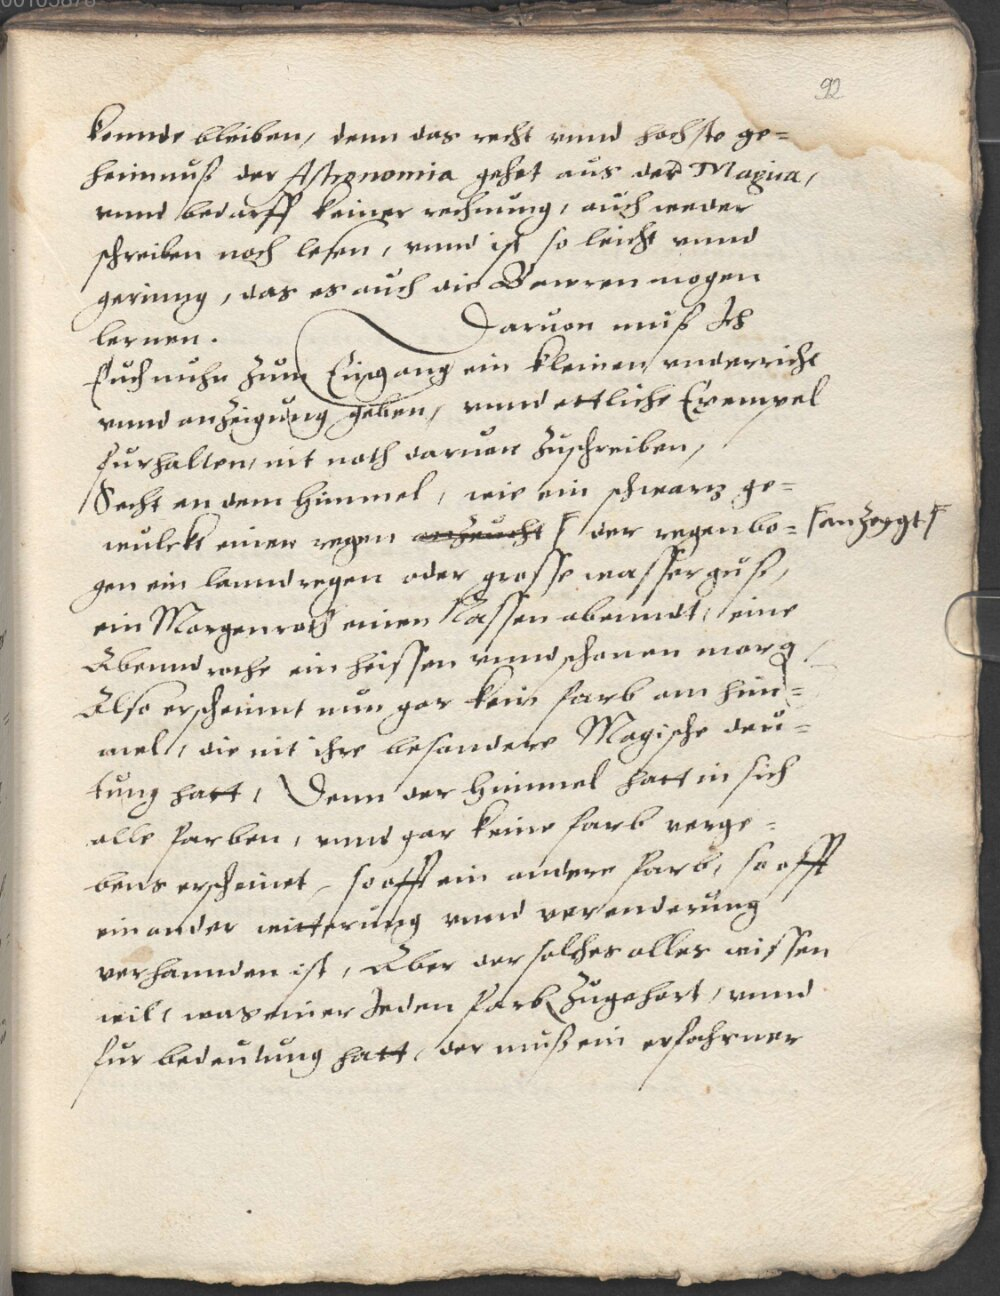 00105876
92
konnde bleiben, denn das recht vnnd hochste ge=
heimnuß der Astronomia gehet aus der Magica,
vnnd bedarff keiner rechnung, auch weder
schreiben noch lesen, vnnd ist so leicht vnnd
gering, das es auch die Bawren mogen
lernen. Daruon muß Ich
Euch nuhn zum Eingang ein kleinen vnderricht
vnnd anzeigung geben, vnnd ettliche Exempel
furhalten, nit noth daruon zuschreiben,
Secht an dem himmel, wie ein schwartz ge=
wulckt einen regen anzeucht / der regenbo= /anzeygt/
gen ein lanndregen oder grosse wasserguß,
ein Morgenroth einen Nassen abenndt, eine
Abennd rothe ein heissen vnnd schonen morg
Also erscheinnt nun gar kein farb am him=
mel, die nit ihre besondere Magische deu=
tung hatt, Denn der himmel hatt in sich
alle farben, vnnd gar keine farb verge=
bens erscheinet, so offt ein andere farb, so offt
ein ander witterung vnnd verenderung
verhannden ist, Aber der solches alles wissen
wil, was einer Jeden farb zugehort, vnnd
fur bedeutung hatt, der muß ein erfahrner